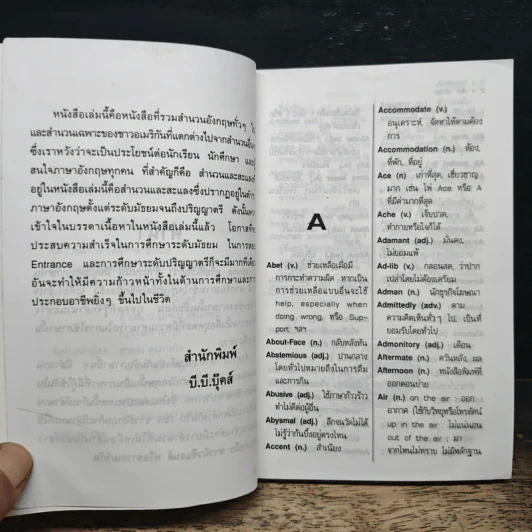 หนังสือเล่มนี้คือหนังสือที่รวมสำนวนอังกฤษทั่วๆ ไ
และสำนวนเฉพาะของชาวอเมริกันที่แตกต่างไปจากสำนวนอื่นๆ
ซึ่งเราหวังว่าจะเป็นประโยชน์ต่อนักเรียน นักศึกษา และผู้
สนใจภาษาอังกฤษทุกคน ที่สำคัญก็คือ สำนวนและสแลง
อยู่ในหนังสือเล่มนี้คือสำนวนและสะแลงซึ่งปรากฏอยู่ในตำร
ภาษาอังกฤษตั้งแต่ระดับมัธยมจนถึงปริญญาตรี ดังนั้นหาก
เข้าใจในบรรดาเนื้อหาในหนังสือเล่มนี้แล้ว โอกาสที่จะ
ประสบความสำเร็จในการศึกษาระดับมัธยม ในการสอบ
Entrance และการศึกษาระดับปริญญาตรีก็จะมีมากทีเดีย
อันจะทำให้มีความก้าวหน้าทั้งในด้านการศึกษาและการ
ประกอบอาชีพยิ่งๆ ขึ้นไปในชีวิต
สำนักพิมพ์
บี.บี.บุ๊คส์
A
Abet (v.) ช่วยเหลือเมื่อมี
การกระทำความผิด หากเป็น
การช่วยเหลือแบบอื่นจะใช้
help, especially when
doing wrong, หรือ Sup-
port ฯลฯ
About-Face (n.) กลับหลังหัน
Abstemious (adj.) ปานกลาง
โดยทั่วไปหมายถึงในการดื่ม
และการกิน
Abusive (adj.) ใช้ภาษาก้าวร้าว
ทำไม่ดีต่อผู้อื่น
Abysmal (adj.) ลึกจนวัดไม่ได้
ไม่รู้ว่าก้นบึ้งอยู่ตรงไหน
Accent (n.) สำเนียง
Accommodate (v.)
อนุเคราะห์, จัดหาให้ตามต้อง
การ
Accommodation (n.) ห้อง,
ที่พัก, ที่อยู่
Ace (n) เก่าที่สุด, เชี่ยวชาญ
มาก เช่น ไพ่ Ace หรือ A
ที่มีค่ามากที่สุด
Ache (v.) เจ็บปวด,
ทำกายหรือใจก็ได้
Adamant (adj.) มั่นคง,
ไม่ยอมแพ้
Ad-lib (v.) กลอนสด, ว่าปาก
เปล่าโดยไม่ต้องเตรียม
Adman (n.) นักธุรกิจโฆษณา
Admittedly (adv.) ตาม
ความคิดเห็นทั่วๆ ไป เป็นที่
ยอมรับโดยทั่วไป
Admonitory (adj.) เตือน
Aftermate (n.) ควันหลง, ผล
Afternoon (n.) หนังสือพิมพ์ที่
ออกตอนบ่าย
Air (n.) on the air : ออก
อากาศ (ใช้กับวิทยุหรือโทรทัศน์
up in the air : ไม่แน่นอน
out of the air : มา
จากไหนไม่ทราบ ไม่มีหลักฐาน